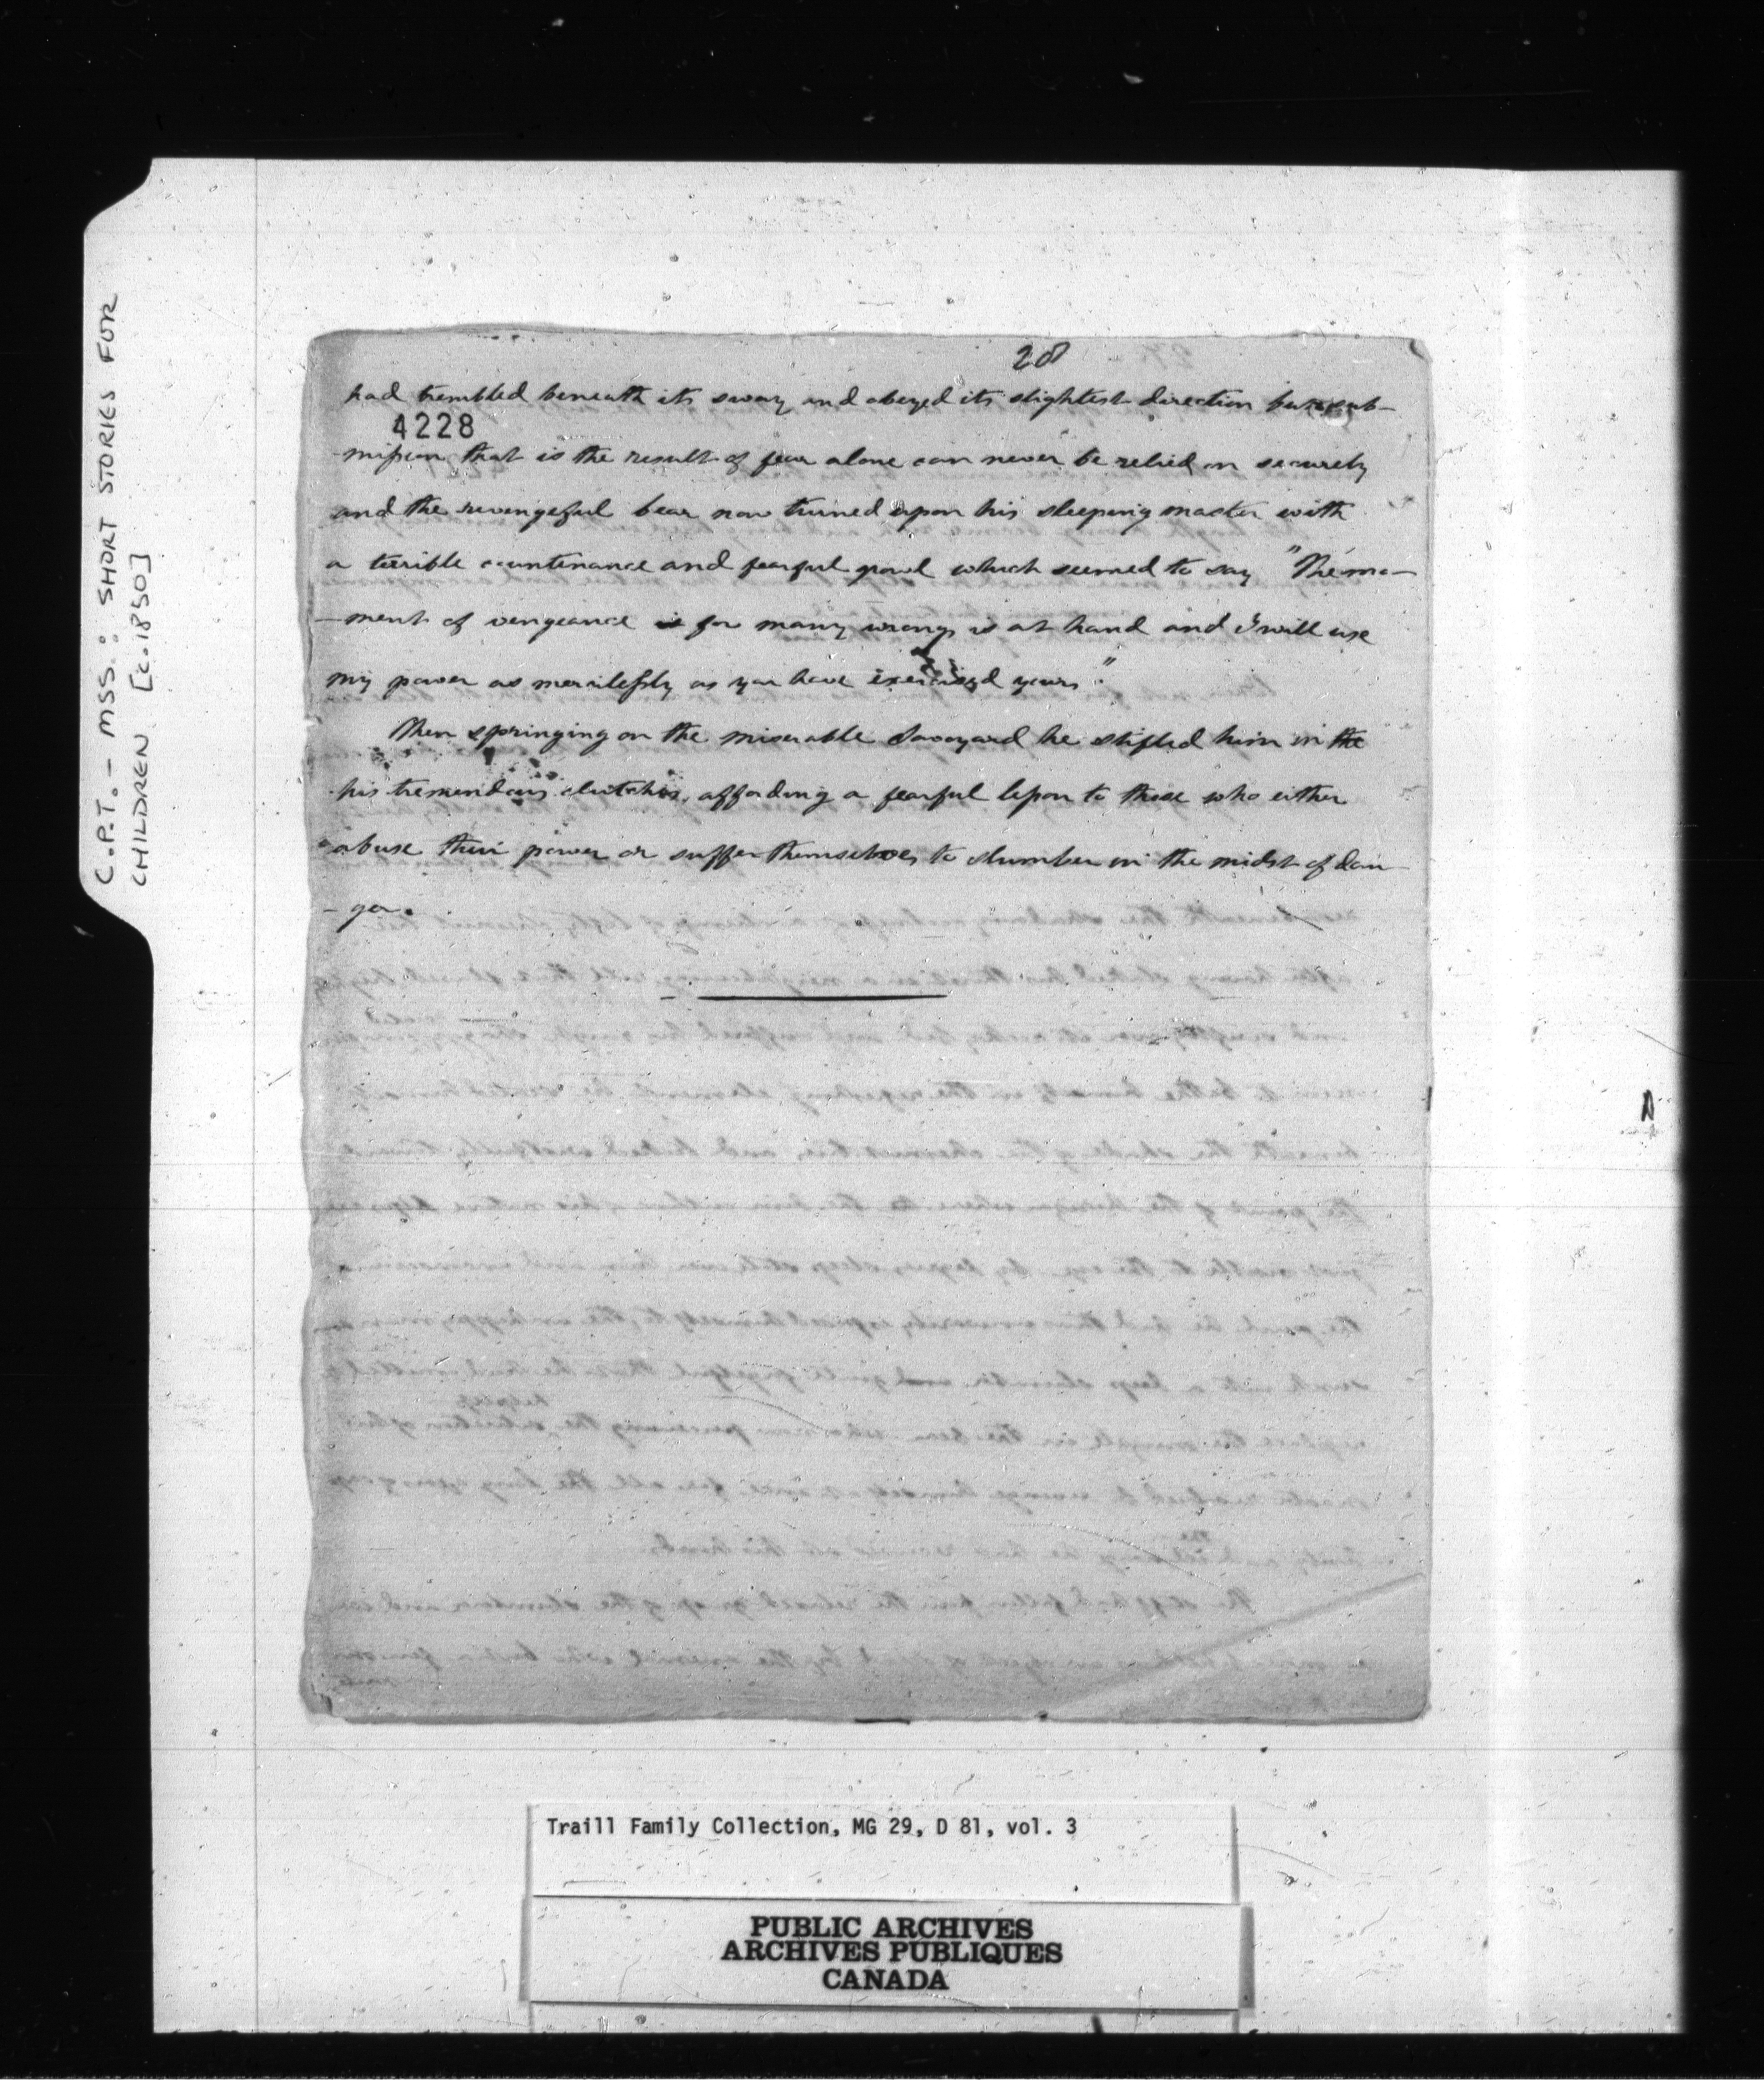 C.P.T. - MSS.: SHORT STORIES FOR
CHILDREN [c.1850]
28
had trembled beneath its sway and obeyed its slightest direction but sub-
4228
-mission that is the result of fear alone can never be relied on securely
and the revengeful bear now turned upon his sleeping master with
a terrible countenance and fearful growl which seemed to say "The mo-
-ment of vengeance is for many wrongs is at hand and I will use
my power as mercilessly as you have exercised yours"
Then springing on the miserable Savoyard he stifled him in the
his tremendous clutches, affording a fearful lesson to those who either
abuse their power or suffer themselves to slumber in the midst of dan-
-ger.
Traill Family Collection, MG 29, D 81, vol. 3
PUBLIC ARCHIVES
ARCHIVES PUBLIQUES
CANADA